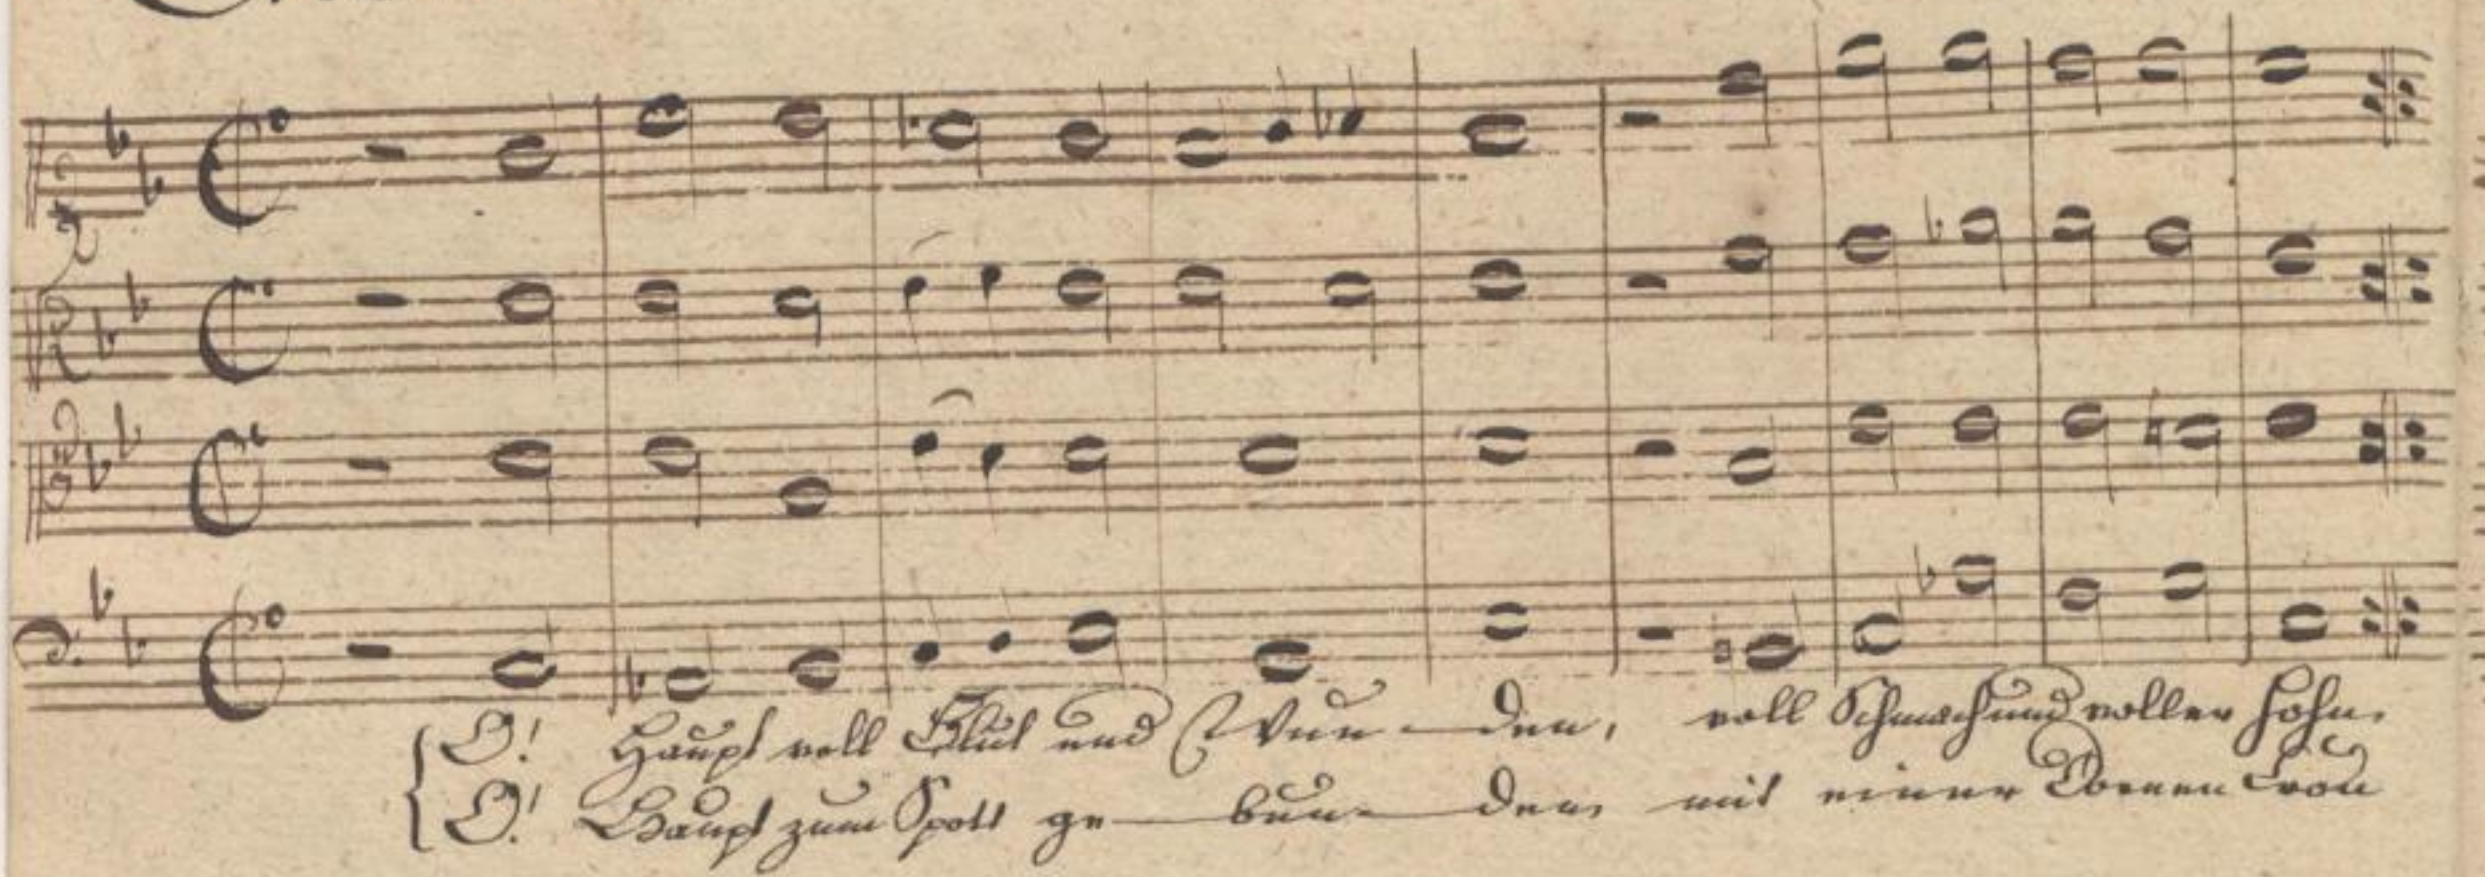 O! Haupt voll Blut und Wun - den, voll Schmach und voller Hohn.
O! Haupt zum Spott ge - bun - den mit einer Dornen Cron